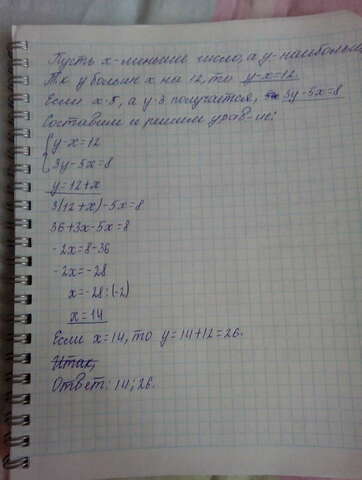 Пусть x-меньшее число, а y-наибольш
Т.к y больше x на 12, то y-x=12
Если x·5, а y·3 получается, 3y-5x=8
Составим и решим урав-не:
{y-x=12
{3y-5x=8
y=12+x
3(12+x)-5x=8
36+3x-5x=8
-2x=8-36
-2x=-28
x=-28:(-2)
x=14
Если x=14, то y=14+12=26.
Итак,
Ответ: 14; 26.